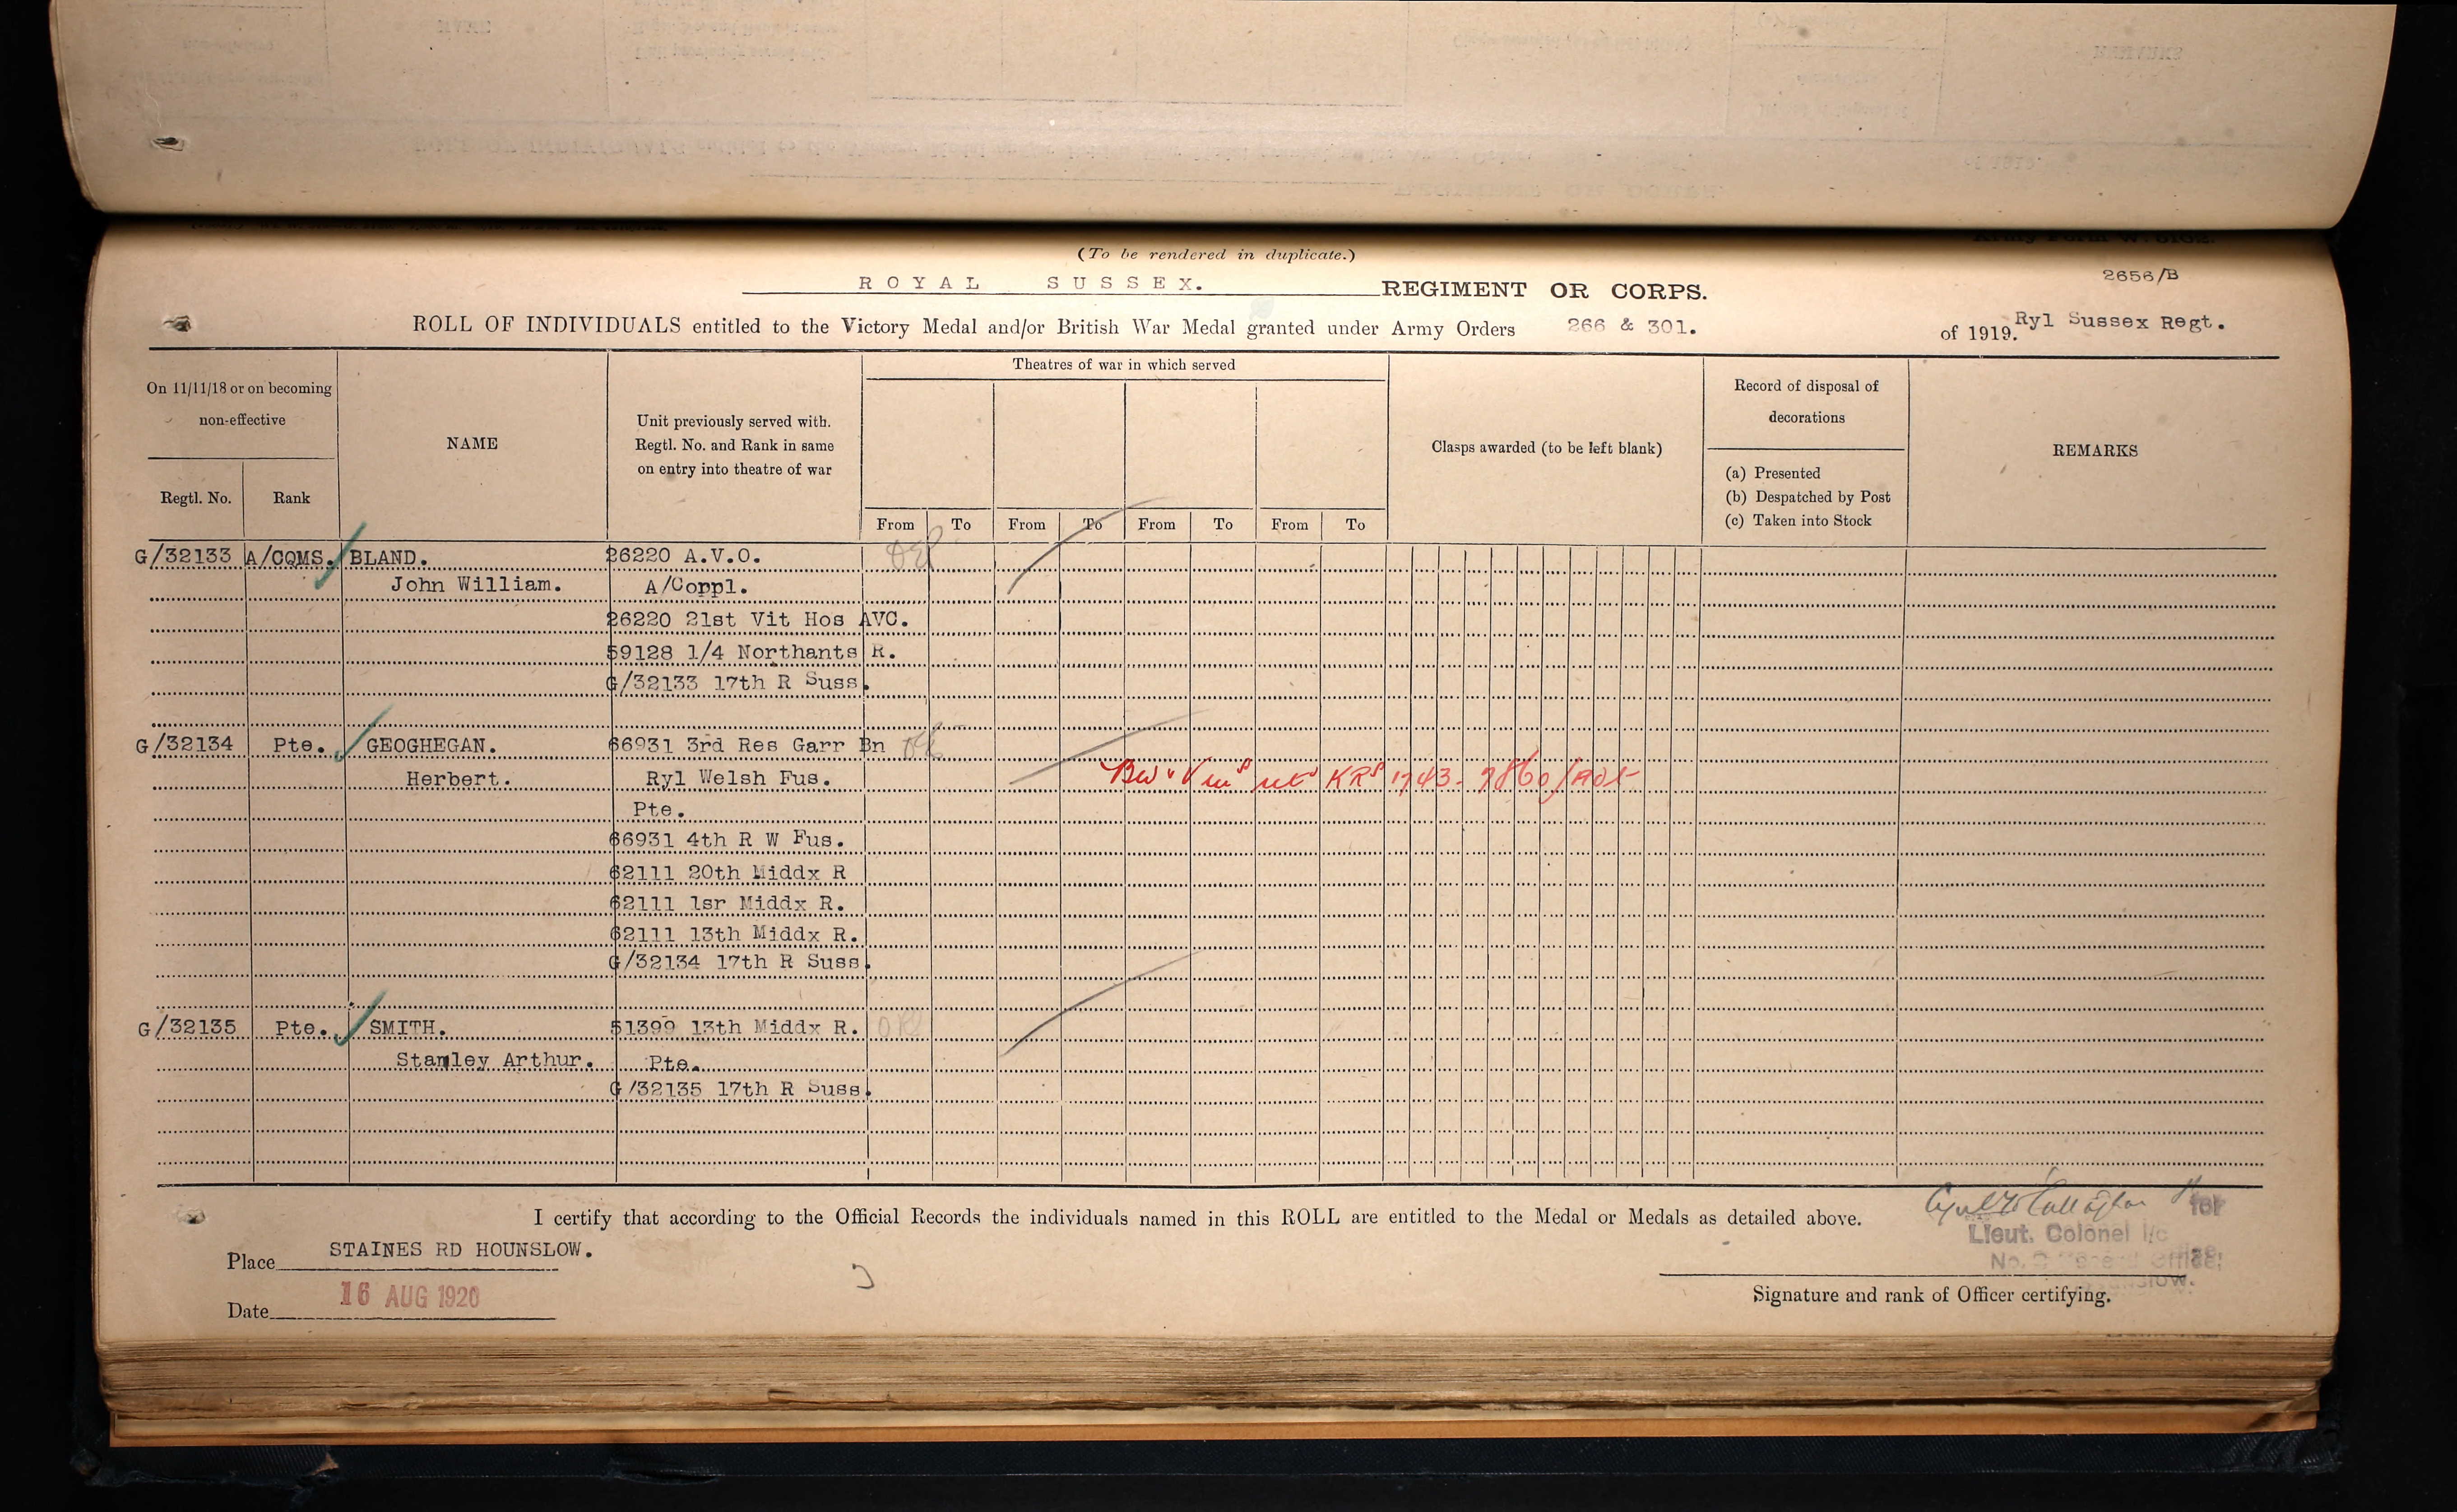 (To be rendered in duplicate.)
2656/B
ROYAL SUSSEX. REGIMENT OR CORPS.
ROLL OF INDIVIDUALS entitled to the Victory Medal and/or British War Medal granted under Army Orders 266 & 301. of 1919. Ryl Sussex Regt.
On 11/11/18 or on becoming non-effective
Regtl. No.
Rank
NAME
Unit previously served with.
Regtl. No. and Rank in same
on entry into theatre of war
Theatres of war in which served
From To From To From To From To
Clasps awarded (to be left blank)
Record of disposal of
decorations
(a) Presented
(b) Despatched by Post
(c) Taken into Stock
REMARKS
G/32133 A/CQMS. BLAND. 26220 A.V.O.
John William. A/Corpl.
26220 21st Vit Hos AVC.
59128 1/4 Northants R.
G/32133 17th R Suss.
G/32134 Pte. GEOGHEGAN. 66931 3rd Res Garr Bn
Herbert. Ryl Welsh Fus. KRs 1743. 7860/Adt
Pte.
66931 4th R W Fus.
62111 20th Middx R
62111 1sr Middx R.
62111 13th Middx R.
G/32134 17th R Suss.
G/32135 Pte. SMITH. 51399 13th Middx R.
Stanley Arthur. Pte.
G/32135 17th R Suss.
I certify that according to the Official Records the individuals named in this ROLL are entitled to the Medal or Medals as detailed above.
for
Lieut. Colonel i/c
Place STAINES RD HOUNSLOW.
Date 16 AUG 1920
Signature and rank of Officer certifying.